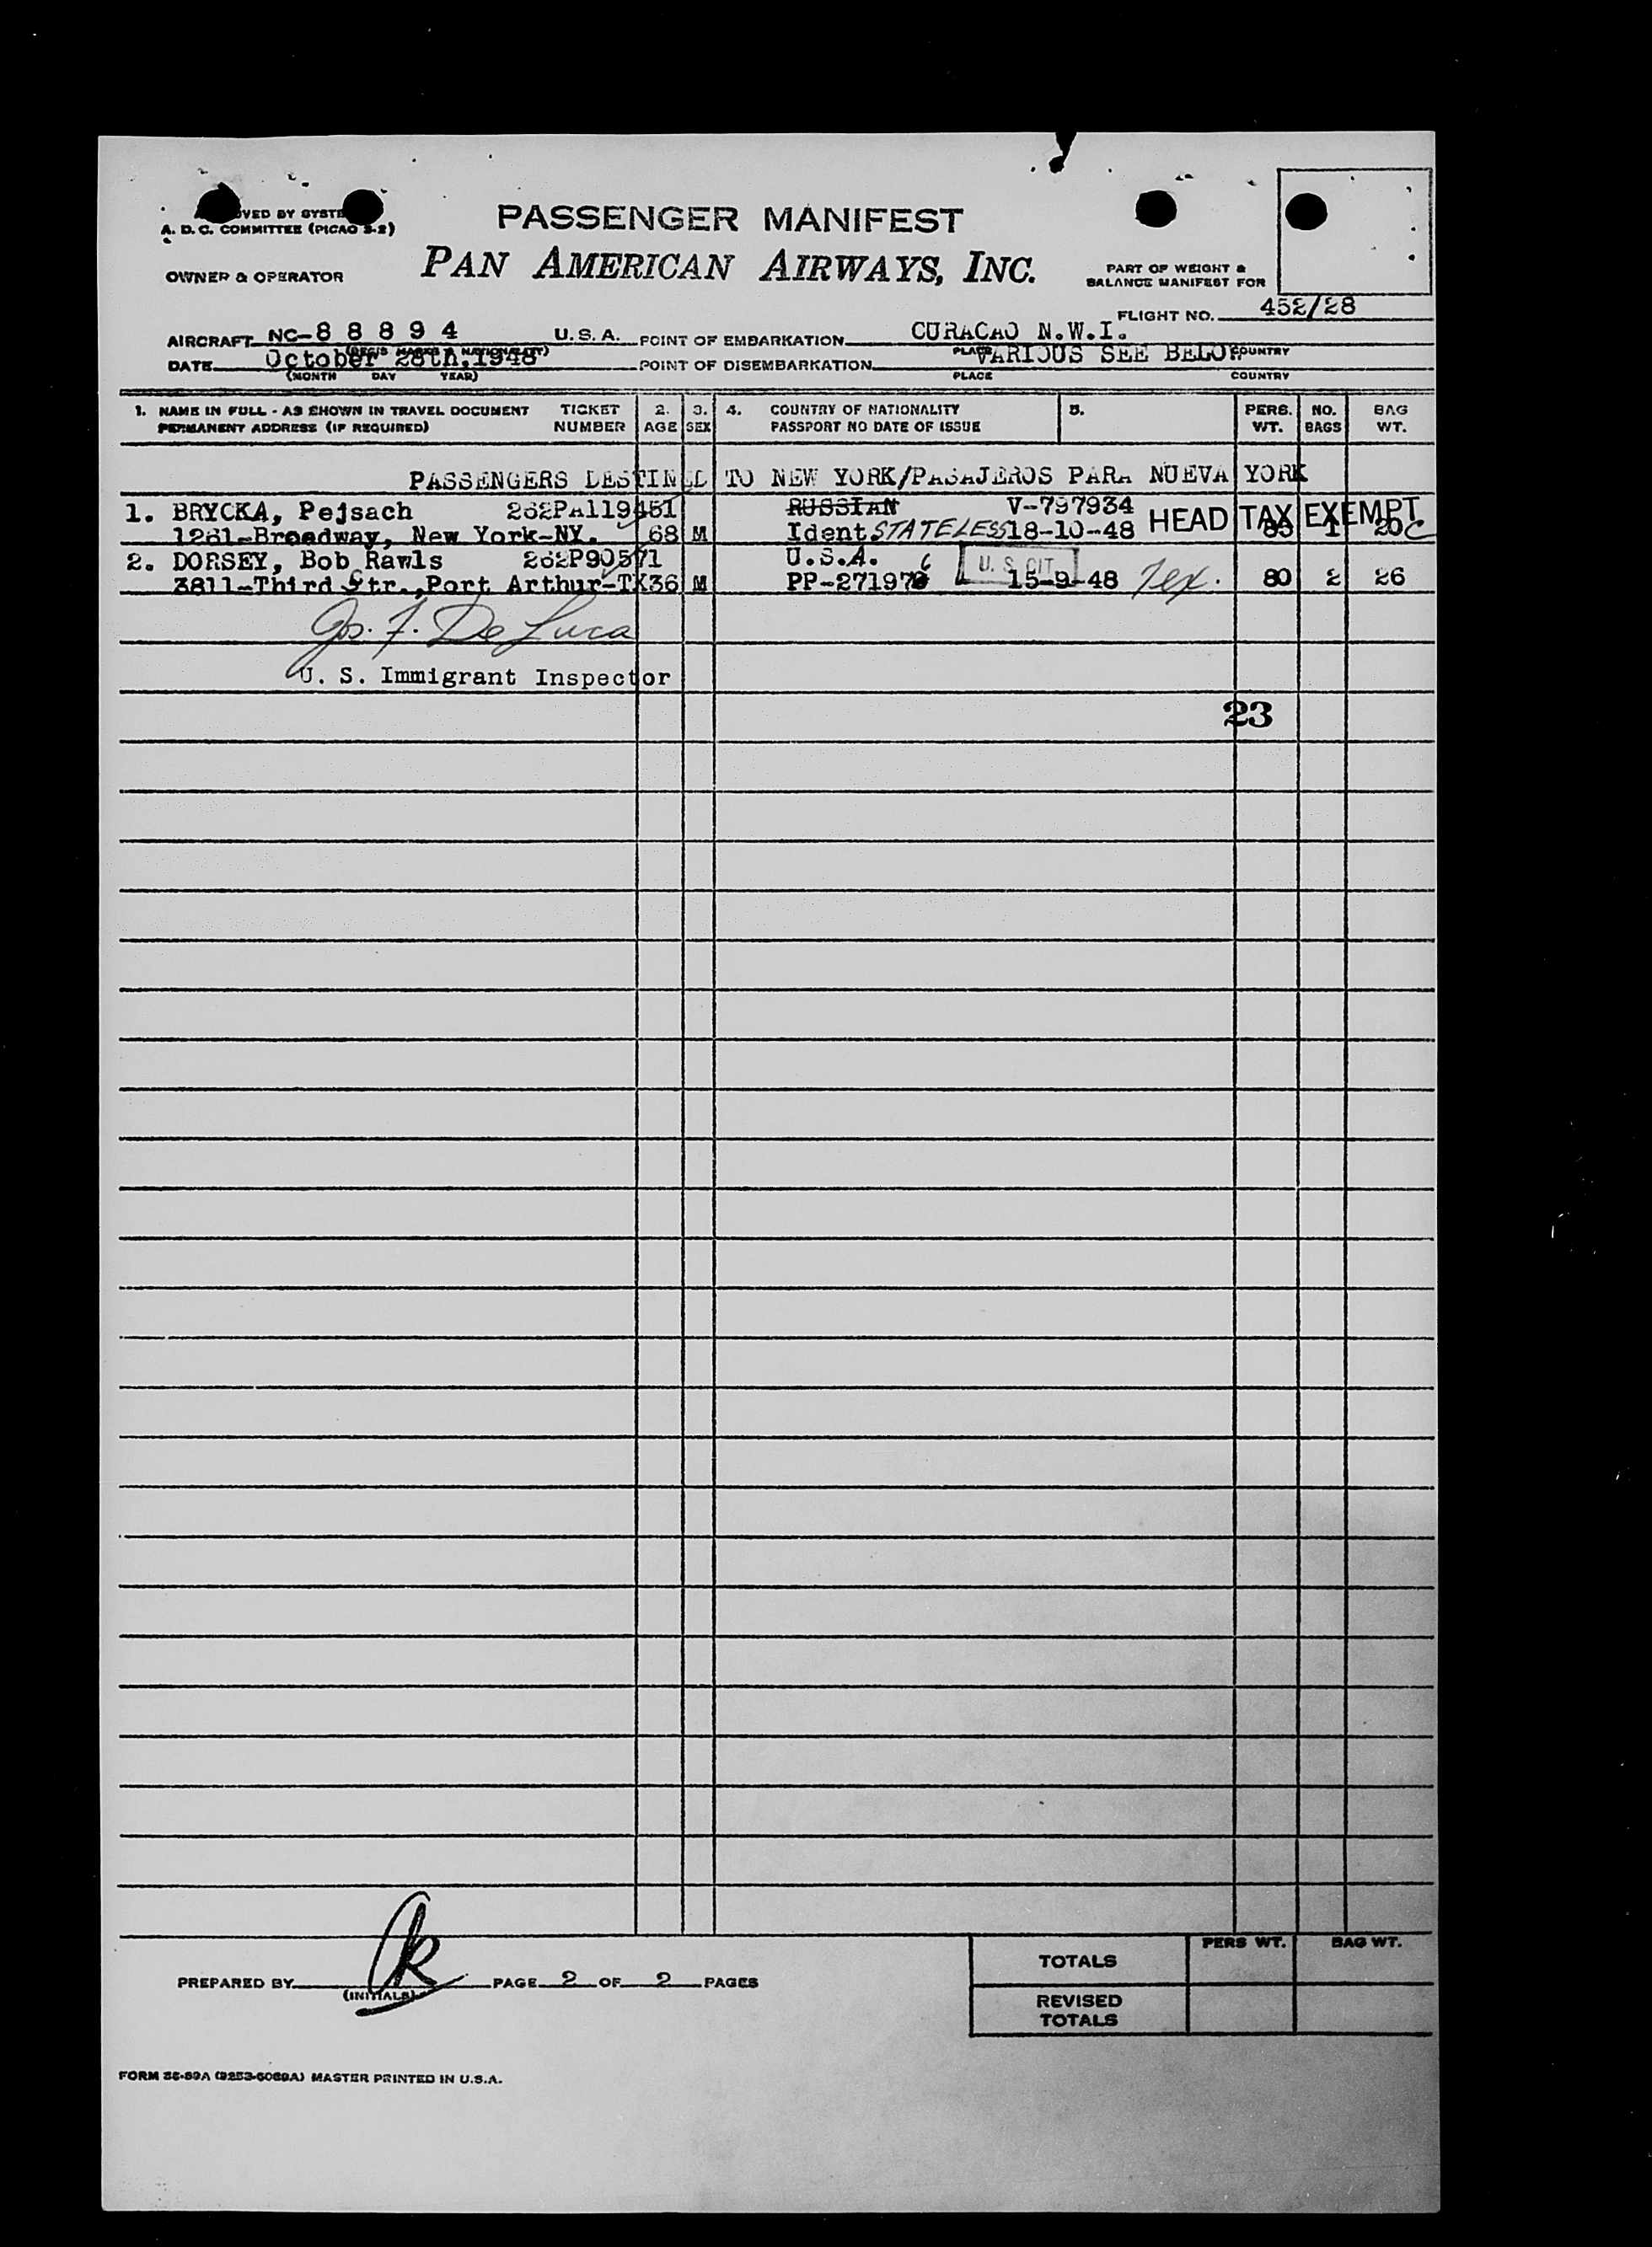 PASSENGER MANIFEST
A. D. C. COMMITTEE (PICAO 3-2)
PAN AMERICAN AIRWAYS, INC.
OWNER & OPERATOR
PART OF WEIGHT &
BALANCE MANIFEST FOR
FLIGHT NO. 452/28
AIRCRAFT NC-8 8 8 9 4 U. S. A. POINT OF EMBARKATION CURACAO N.W.I.
PLACE COUNTRY
DATE October 28th, 1948 POINT OF DISEMBARKATION VARIOUS SEE BELOW
(MONTH DAY YEAR) PLACE COUNTRY
1. NAME IN FULL - AS SHOWN IN TRAVEL DOCUMENT TICKET 2. 3. 4. COUNTRY OF NATIONALITY 5. PERS. NO. BAG
PERMANENT ADDRESS (IF REQUIRED) NUMBER AGE SEX PASSPORT NO DATE OF ISSUE WT. BAGS WT.
PASSENGERS DESTINED TO NEW YORK/PASAJEROS PARA NUEVA YORK
1. BRYCKA, Pejsach 262PA119451 RUSSIAN V-797934 HEAD TAX EXEMPT
1261-Broadway, New York-NY. 68 M Ident STATELESS 18-10-48 85 1 20
2. DORSEY, Bob Rawls 262P90571 U.S.A. 6 U. S. CIT.
3811-Third Str., Port Arthur-TX 36 M PP-27197 15-9-48 Tex. 80 2 26
Jos. F. De Luca
U. S. Immigrant Inspector
23
PERS WT. BAG WT.
TOTALS
PREPARED BY (INITIALS) PAGE 2 OF 2 PAGES
REVISED
TOTALS
MASTER PRINTED IN U.S.A.